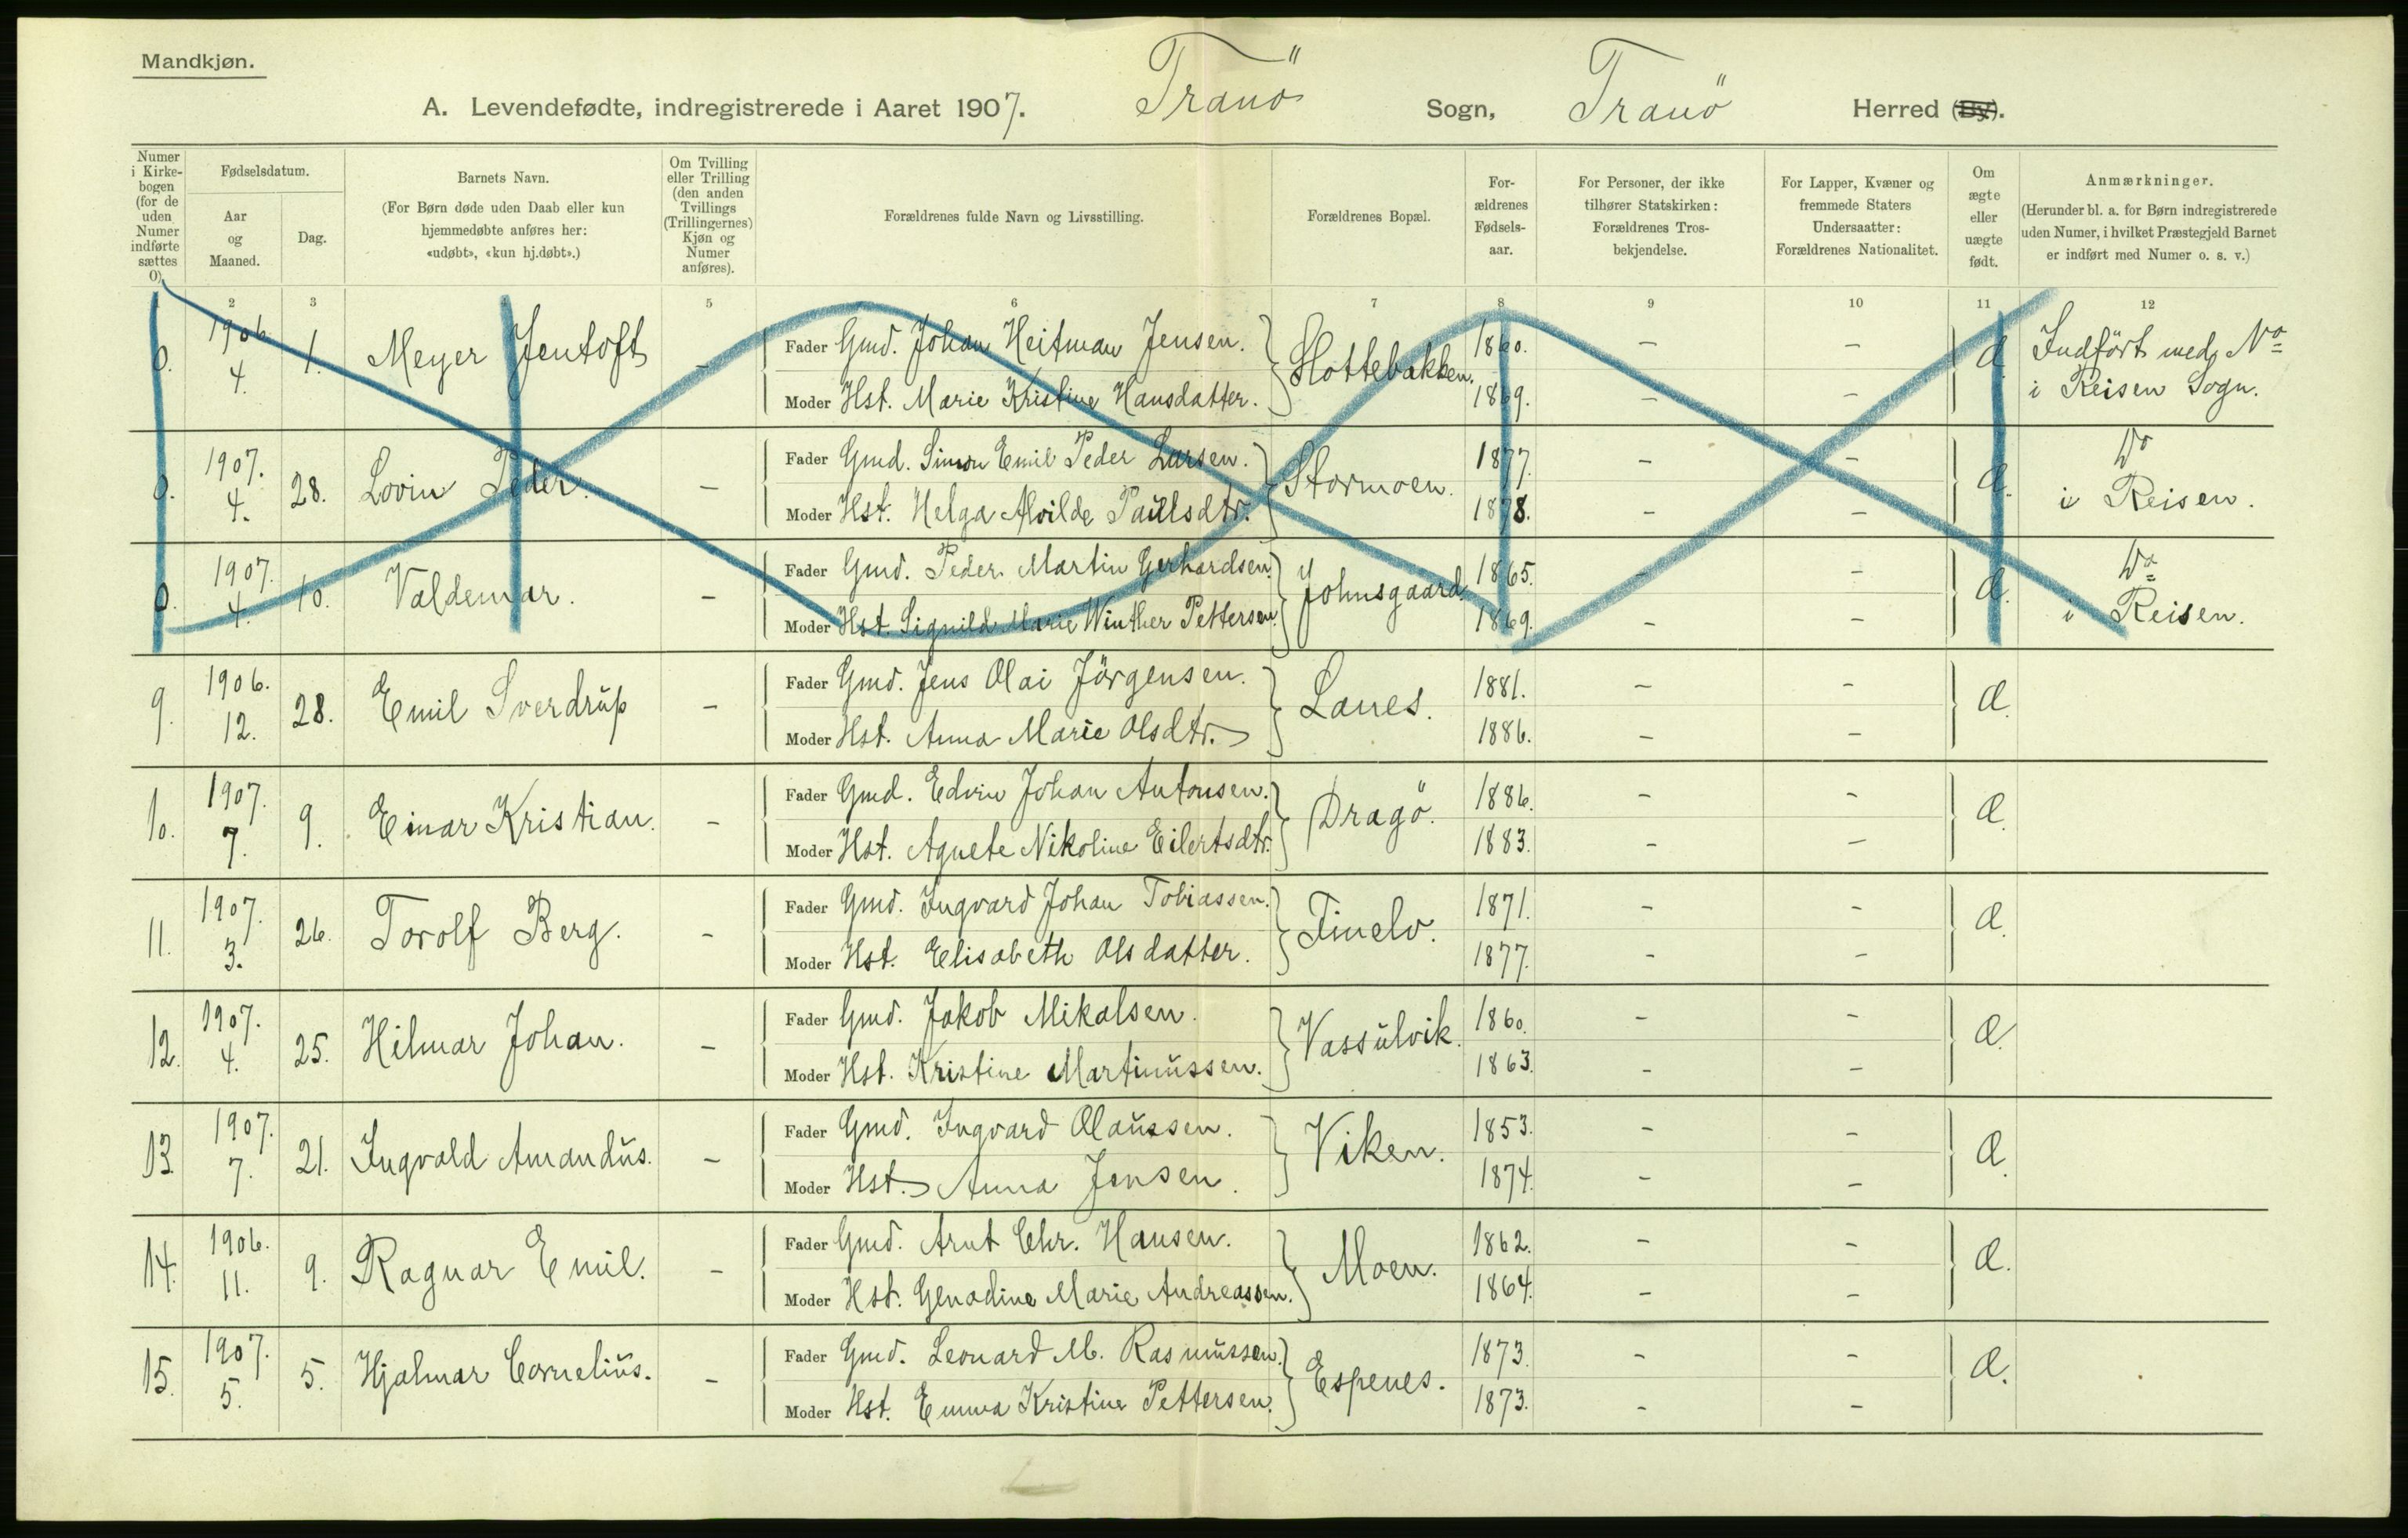 Mandkjøn.
A. Levendefødte, indregistrerede i Aaret 1907. Tranö Sogn, Tranö Herred (By).
Numer i Kirkebogen (for de uden Numer indførte sættes 0).
Fødselsdatum.
Aar og Maaned.
Dag.
Barnets Navn.
(For Børn døde uden Daab eller kun hjemmedøbte anføres her: «udøbt», «kun hj.døbt».)
Om Tvilling eller Trilling (den anden Tvillings (Trillingernes) Kjøn og Numer anføres).
Forældrenes fulde Navn og Livsstilling.
Forældrenes Bopæl.
Forældrenes Fødselsaar.
For Personer, der ikke tilhører Statskirken: Forældrenes Trosbekjendelse.
For Lapper, Kvæner og fremmede Staters Undersaatter: Forældrenes Nationalitet.
Om ægte eller uægte født.
Anmærkninger.
(Herunder bl. a. for Børn indregistrerede uden Numer, i hvilket Præstegjeld Barnet er indført med Numer o. s. v.)
1 2 3 4 5 6 7 8 9 10 11 12
0. 1906 4. 1. Meyer Jentoft - Fader Gmd. Johan Heitman Jensen. Slottebakken. 1860. - - Æ. Indført med No
Moder Hst. Marie Kristine Hansdatter. 1869. - - i Reisen Sogn.
0. 1907. 4. 28. Lovin Peder. - Fader Gmd. Simon Emil Peder Larsen. Stormoen. 1877. - - Æ. Do
Moder Hst. Helga Alvilde Paulsdtr. 1878. - - i Reisen.
0. 1907. 4. 10. Valdemar. - Fader Gmd. Peder Martin Gerhardsen. Johnsgaard. 1865. - - Æ. Do
Moder Hst. Signild Marie Winther Pettersen. 1869. - - i Reisen.
9. 1906. 12. 28. Emil Sverdrup - Fader Gmd. Jens Olai Jörgensen. Lanes. 1881. - - Æ.
Moder Hst. Anna Marie Olsdtr. 1886. - -
10. 1907. 7. 9. Einar Kristian. - Fader Gmd. Edvin Johan Antonsen. Dragö. 1886. - - Æ.
Moder Hst. Agnete Nikoline Eilertsdtr. 1883. - -
11. 1907. 3. 26. Torolf Berg. - Fader Gmd. Ingvard Johan Tobiassen. Finelv. 1871. - - Æ.
Moder Hst. Elisabeth Olsdatter. 1877. - -
12. 1907. 4. 25. Hilmar Johan. - Fader Gmd. Jakob Mikalsen. Vassulvik. 1860. - - Æ.
Moder Hst. Kristine Martinussen. 1863. - -
13. 1907. 7. 21. Ingvald Amandus. - Fader Gmd. Ingvard Olaussen. Viken. 1853. - - Æ.
Moder Hst. Anna Jensen. 1874. - -
14. 1906. 11. 9. Ragnar Emil. - Fader Gmd. Arnt Chr. Hansen. Moen. 1862. - - Æ.
Moder Hst. Marie Andreassen. 1864. - -
15. 1907. 5. 5. Hjalmar Cornelius. - Fader Gmd. Leonard M. Rasmussen. Espenes. 1873. - - Æ.
Moder Hst. Emma Kristine Pettersen. 1873. - -